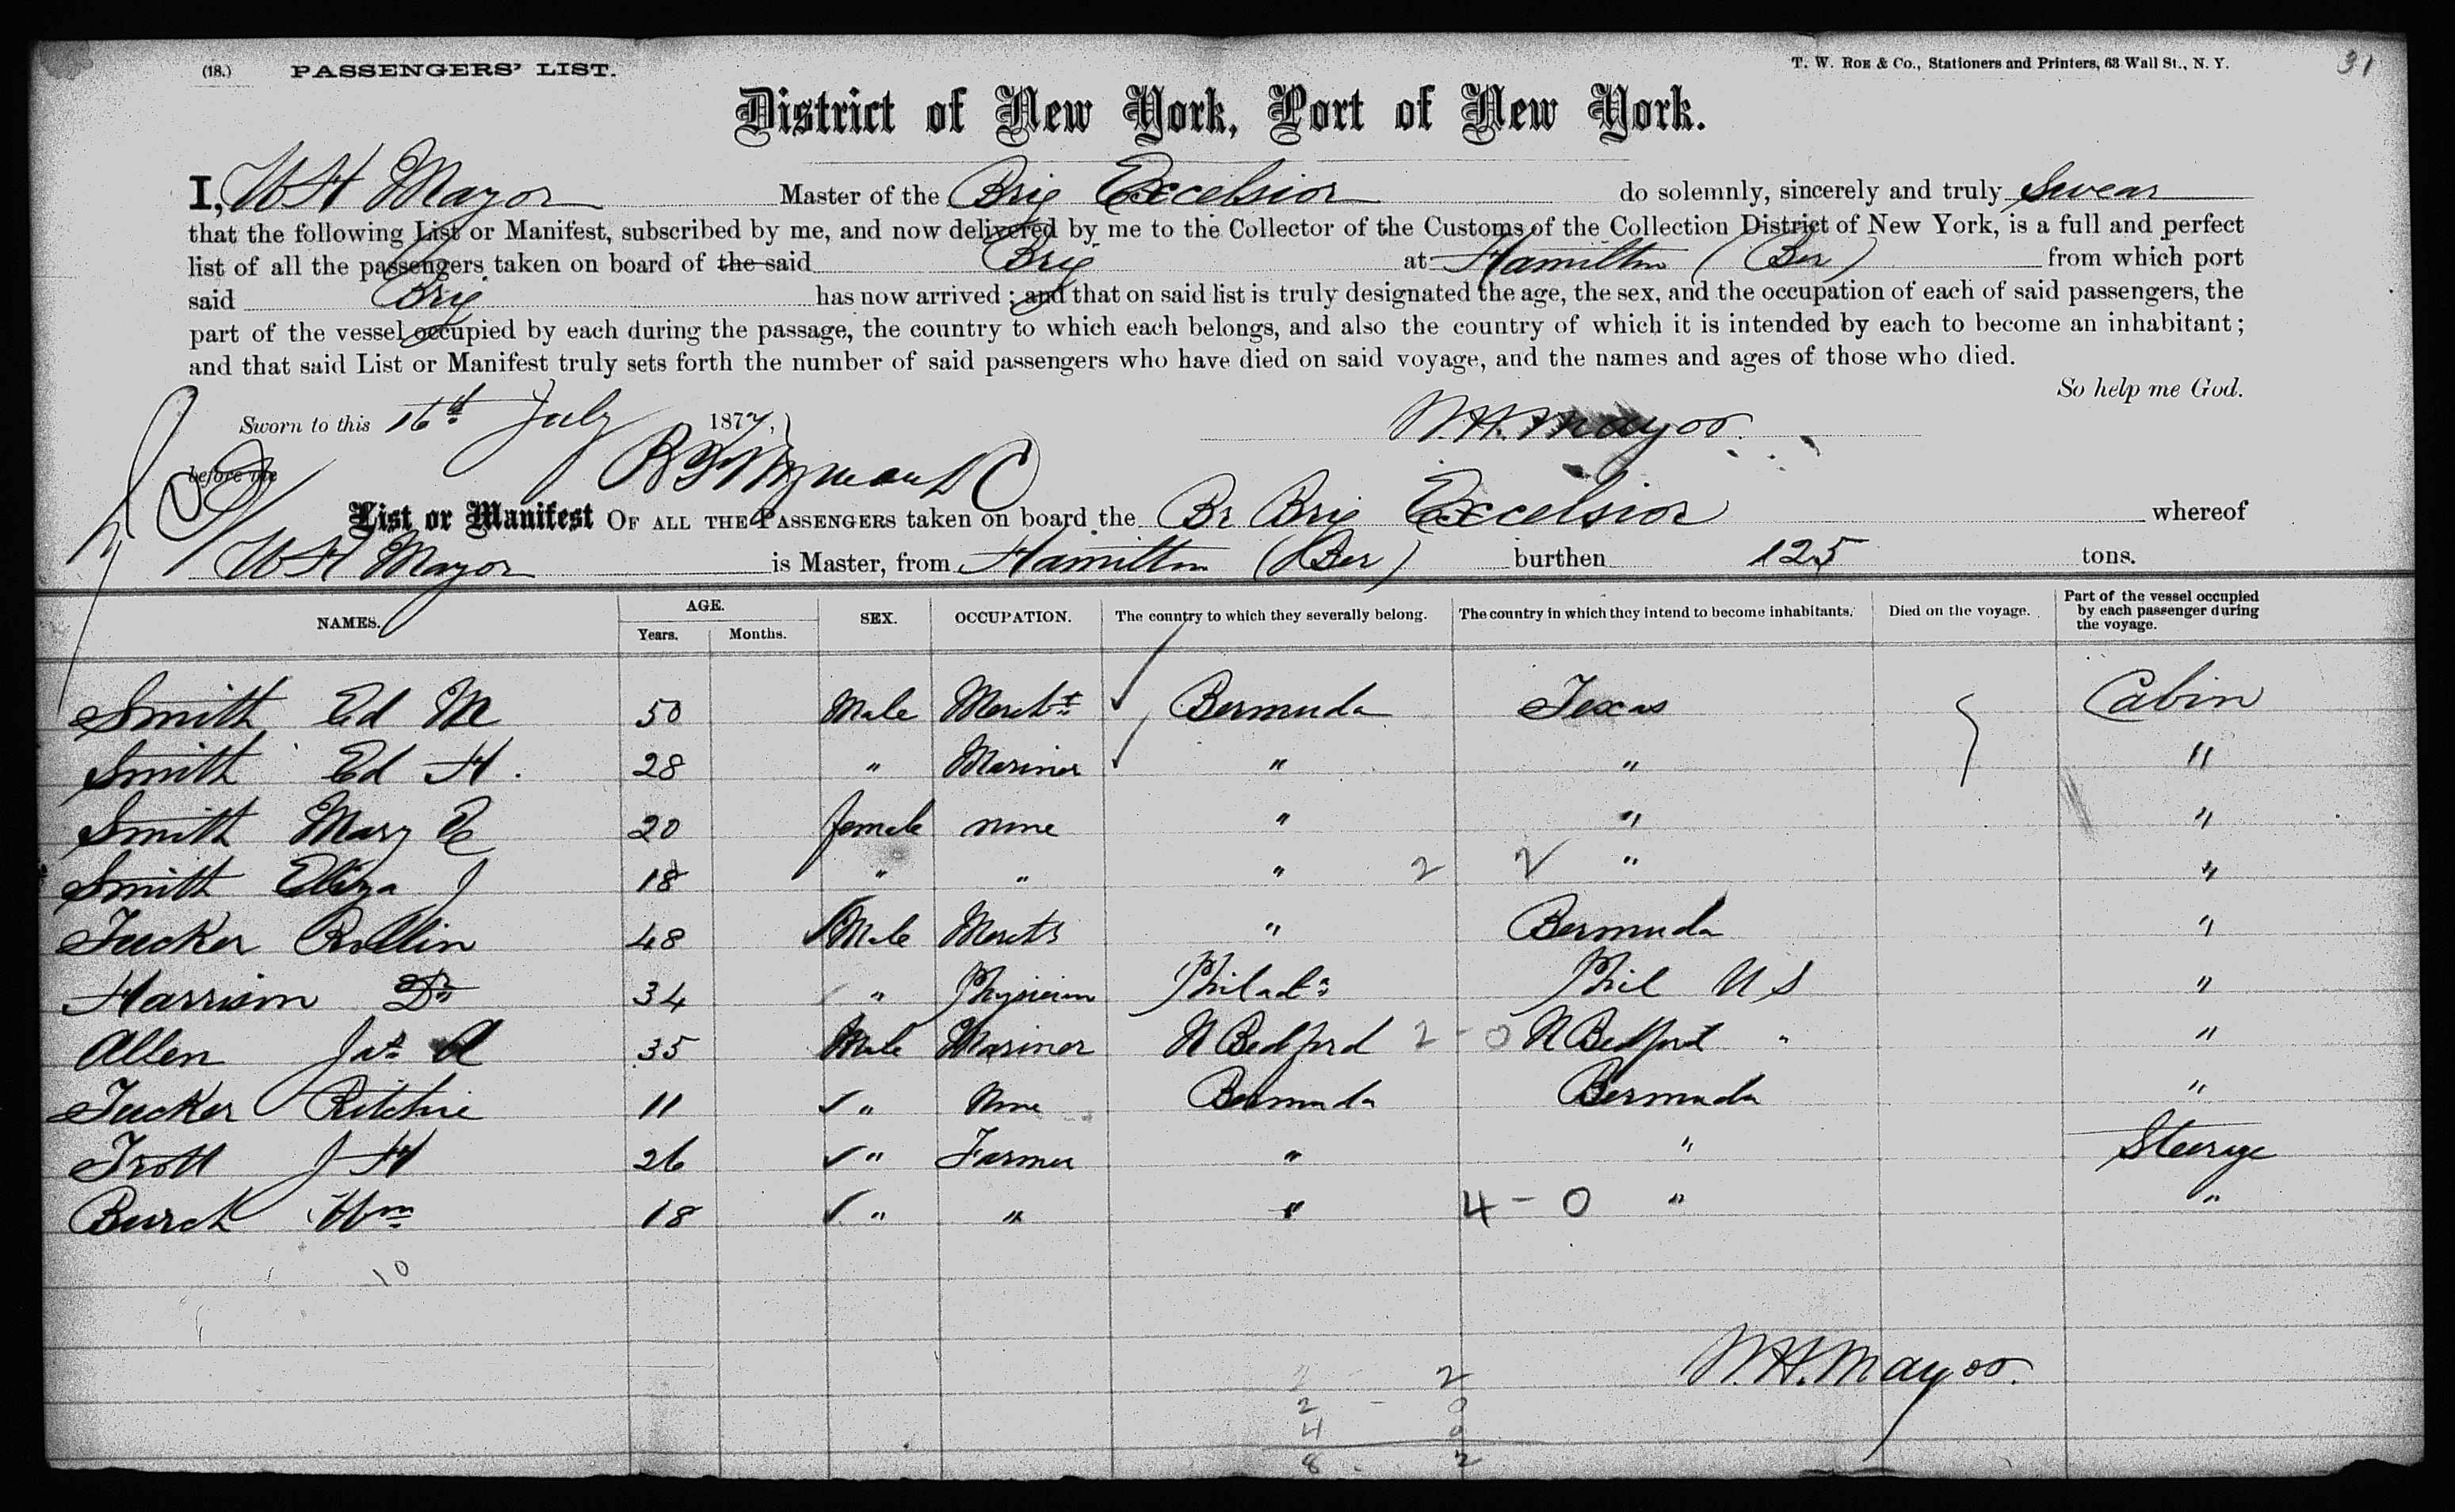 (18.) PASSENGERS' LIST. T. W. ROE & Co., Stationers and Printers, 63 Wall St., N. Y. 31
District of New York, Port of New York.
I, W H Mayor Master of the Brig Excelsior do solemnly, sincerely and truly Swear
that the following List or Manifest, subscribed by me, and now delivered by me to the Collector of the Customs of the Collection District of New York, is a full and perfect
list of all the passengers taken on board of the said Brig at Hamilton (Ber) from which port
said Brig has now arrived; and that on said list is truly designated the age, the sex, and the occupation of each of said passengers, the
part of the vessel occupied by each during the passage, the country to which each belongs, and also the country of which it is intended by each to become an inhabitant;
and that said List or Manifest truly sets forth the number of said passengers who have died on said voyage, and the names and ages of those who died.
So help me God.
Sworn to this 16th July 1877, W. H. Mayor.
before me
List or Manifest OF ALL THE PASSENGERS taken on board the Br Brig Excelsior whereof
W H Mayor is Master, from Hamilton (Ber) burthen 125 tons.
NAMES. AGE. Years. Months. SEX. OCCUPATION. The country to which they severally belong. The country in which they intend to become inhabitants. Died on the voyage. Part of the vessel occupied by each passenger during the voyage.
Smith Ed M 50 Male Mercht Bermuda Texas Cabin
Smith Ed H. 28 " Mariner " " "
Smith Mary E 20 female none " " "
Smith Eliza J 18 " " " 2 2 " "
Tucker Rollin 48 Male Mercht " Bermuda "
Harrison Dr 34 " Physician Philada Phil U S "
Allen Jas A 35 Male Mariner N Bedford 2 - 0 N Bedford " "
Tucker Ritchie 11 " None Bermuda Bermuda "
Trott J H 26 " Farmer " " Steerage
Burch Wm 18 " " " 4 - 0 " "
10
W. H. Mayor.
2
2 - 0
4 0
8 2